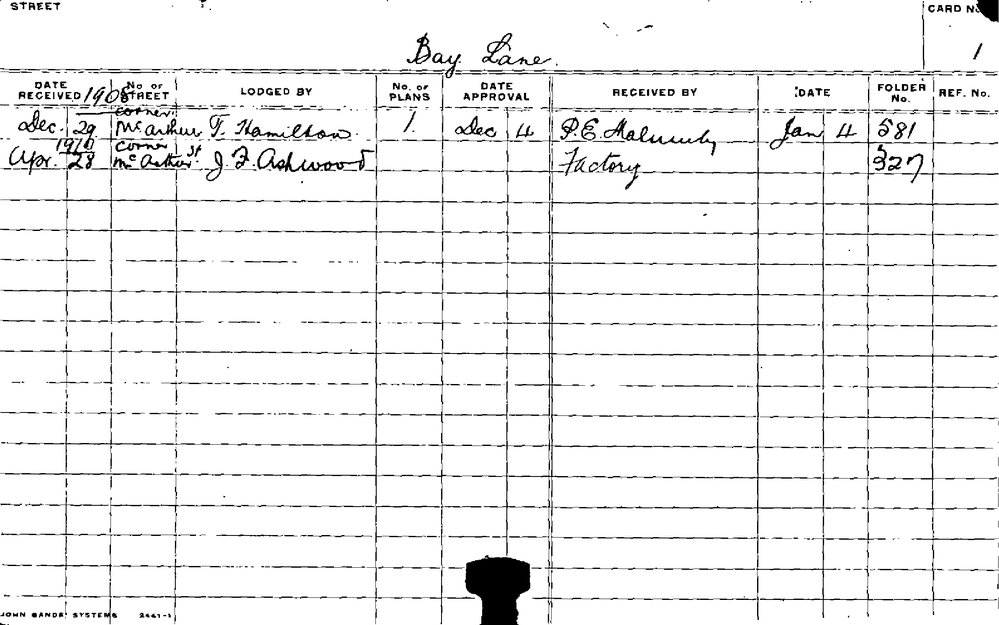 STREET
CARD No.
Bay Lane.
1
DATE RECEIVED No. OF STREET LODGED BY No. OF PLANS DATE APPROVAL RECEIVED BY DATE FOLDER No. REF. No.
1908
corner
Dec. 29 McArthur T. Hamilton 1. Dec 4 P.E. Jan 4 581
1910 corner
Apr. 28 McArthur St. J. F. Ashwood Factory 327
SYSTEMS 2441-1